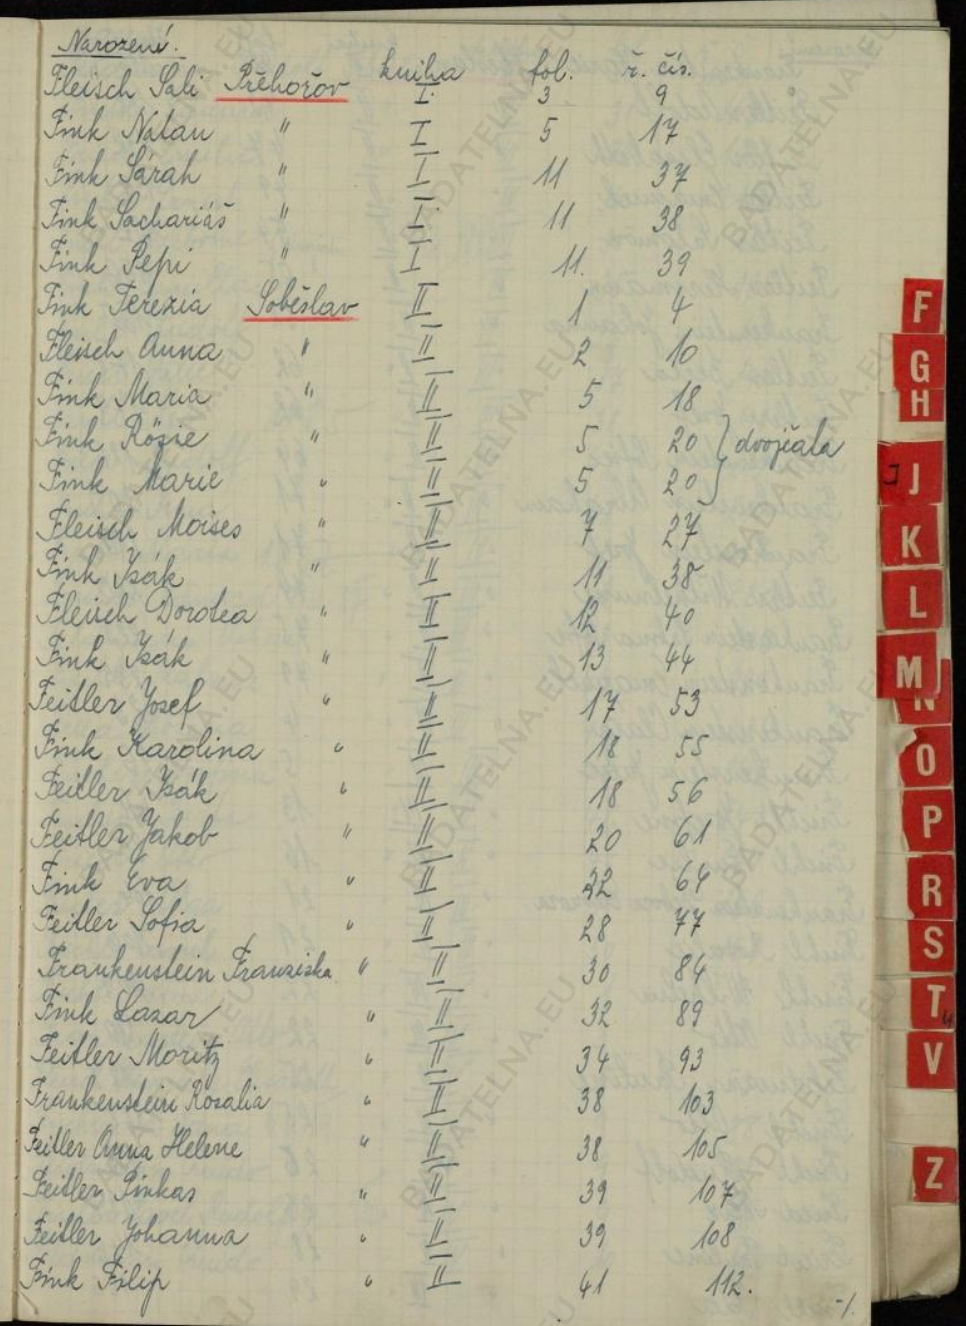 Narození.
kniha fol. ř. čís.
Fleisch Sali Přehořov I. 3 9
Fink Natan " I 5 17
Fink Sárah " I 11 37
Fink Sachariáš " I. 11 38
Fink Pepi " I 11. 39
Fink Terezia Soběslav II 1 4
Fleisch Anna " II 2 10
Fink Maria " II 5 18
Fink Rösie " II 5 20 } dvojčata
Fink Marie " II 5 20
Fleisch Moises " II 7 27
Fink Isák " II 11 38
Fleisch Dorotea " II 12 40
Fink Isák " II 13 44
Feitler Josef " II 17 53
Fink Karolina " II 18 55
Feitler Isák " II 18 56
Feitler Jakob " II 20 61
Fink Eva " II 22 64
Feitler Sofia " II 28 77
Frankenstein Franziska " II 30 84
Fink Lazar " II 32 89
Feitler Moritz " II 34 93
Frankenstein Rosalia " II 38 103
Feitler Anna Helene " II 38 105
Feitler Pinkas " II 39 107
Feitler Johanna " II 39 108
Fink Filip " II 41 112.
-/.
F
G
H
J
K
L
M
N
O
P
R
S
T
V
Z
BADATELNA.EU